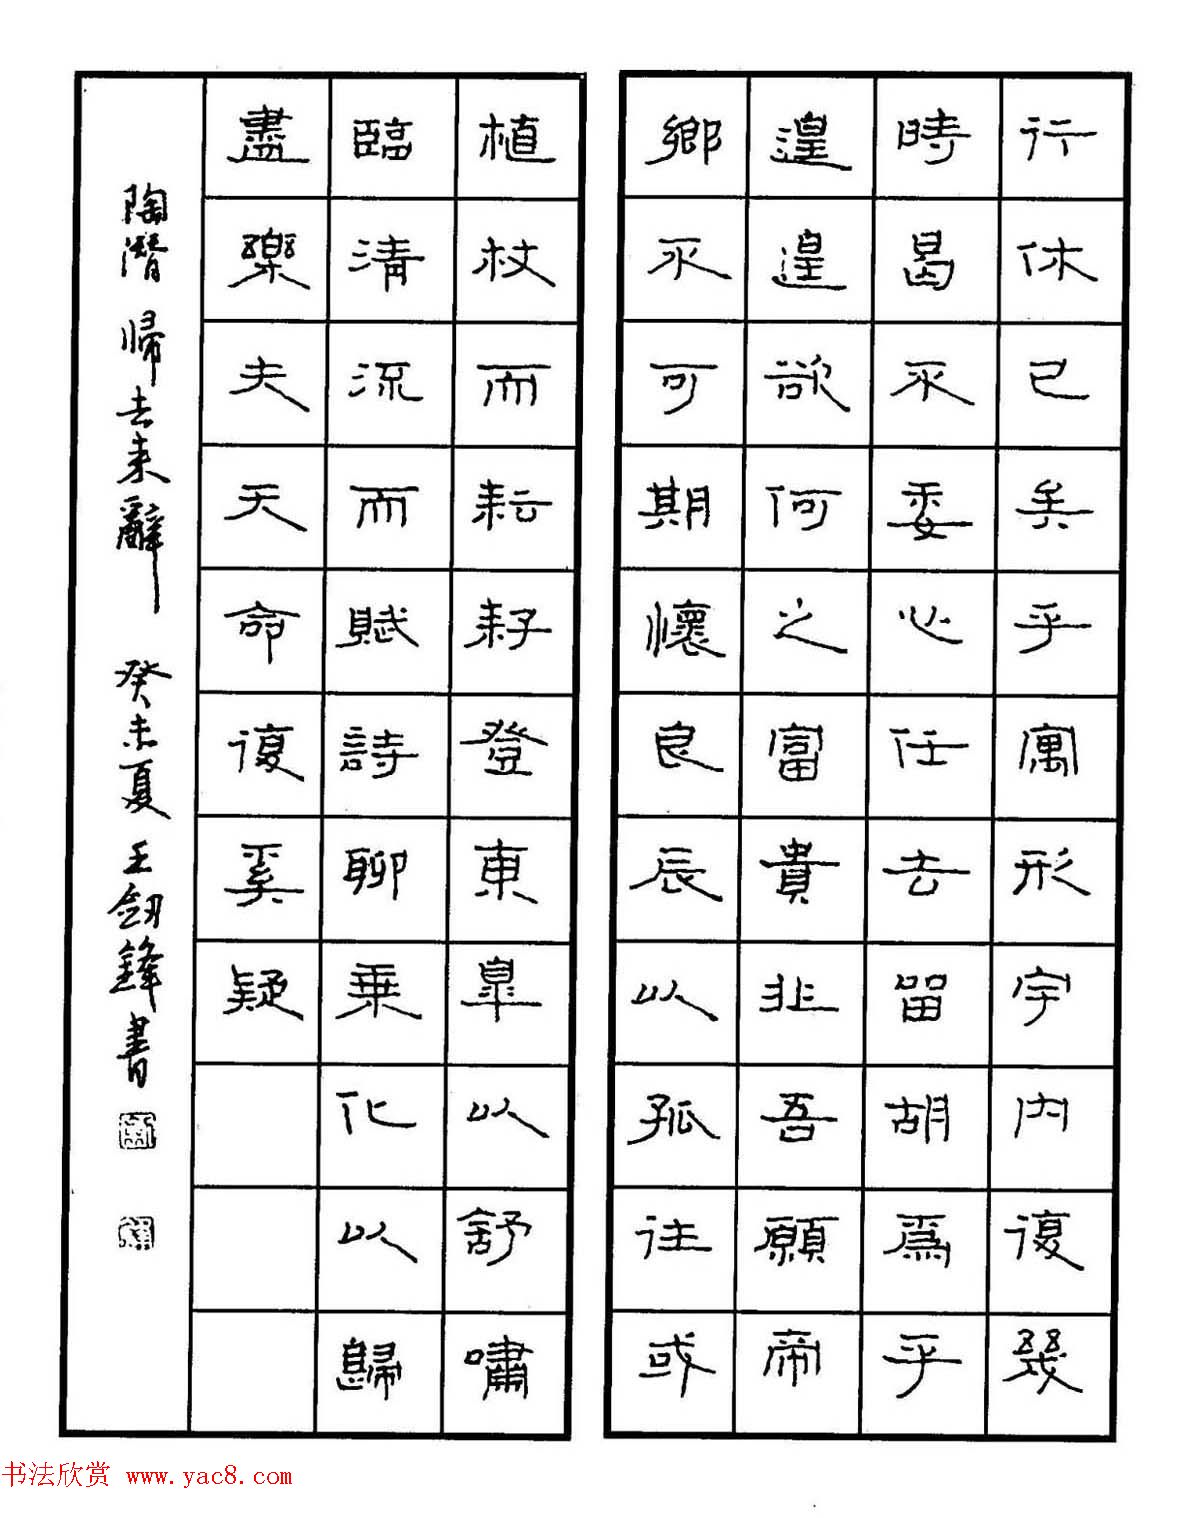 行休已矣乎寓形宇内復幾
時曷不委心任去留胡爲乎
遑遑欲何之富貴非吾願帝
鄉不可期懷良辰以孤往或
植杖而耘耔登東皋以舒嘯
臨清流而賦詩聊乘化以歸
盡樂夫天命復奚疑
陶潛 帰去来辭 癸未夏 王劍鋒書
书法欣赏 www.yac8.com